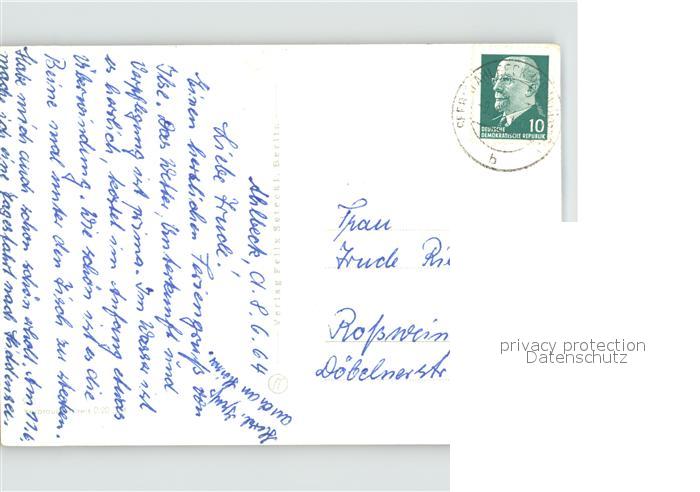 Ahlbeck, d. 8. 6. 64
Liebe Trude!
Einen herzlichen Feriengruß von
Ilse. Das Wetter, Unterkunft und
Verpflegung ist prima. Im Wasser ist
es herrlich, kostet im Anfang etwas
Überwindung. Wie schön ist es die
Beine mal unter den Tisch zu stecken.
Habe mich auch schon schön erholt. Am 11.6
mache ich eine Tagesfahrt nach Hiddensee.
Herzl. Grüße
auch an
Verlag Felix Setecki, Berlin
DEUTSCHE
DEMOKRATISCHE REPUBLIK
10
b
Frau
Trude Rie
Roßwein
Döbelnerstr
privacy protection
Datenschutz